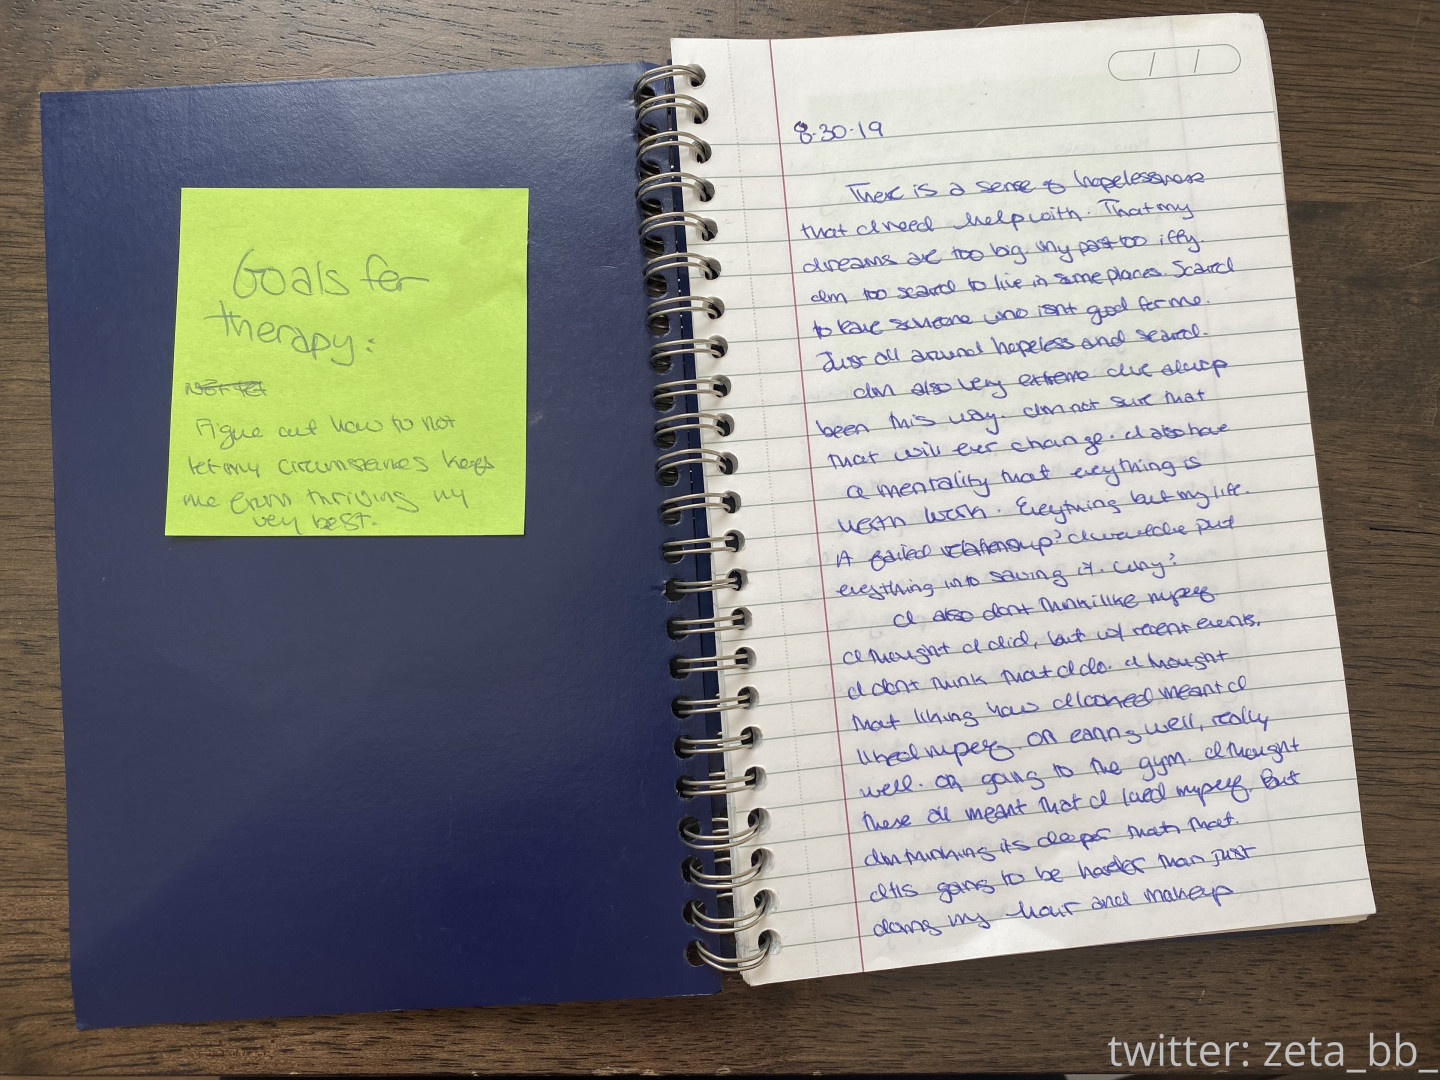 Goals for
therapy:
Figure out how to not
let my circumstances keep
me from thriving my
very best.
8·30·19
There is a sense of hopelessness
that I need help with. That my
dreams are too big my past too iffy.
I'm too scared to live in some places. Scared
to leave someone who isn't good for me.
Just all around hopeless and scared.
I'm also very extreme I've always
been this way. I'm not sure that
that will ever change. I also have
a mentality that everything is
worth work. Everything but my life.
A failed relationship? I would put
everything into saving it. Why?
I also don't think I like myself
I thought I did, but w/ recent events.
I don't think that I do. I thought
that liking how I looked meant I
liked myself. OR eating well, really
well. OR going to the gym. I thought
these all meant that I loved myself. But
I'm thinking its deeper than that.
It's going to be harder than just
doing my hair and makeup
twitter: zeta_bb_